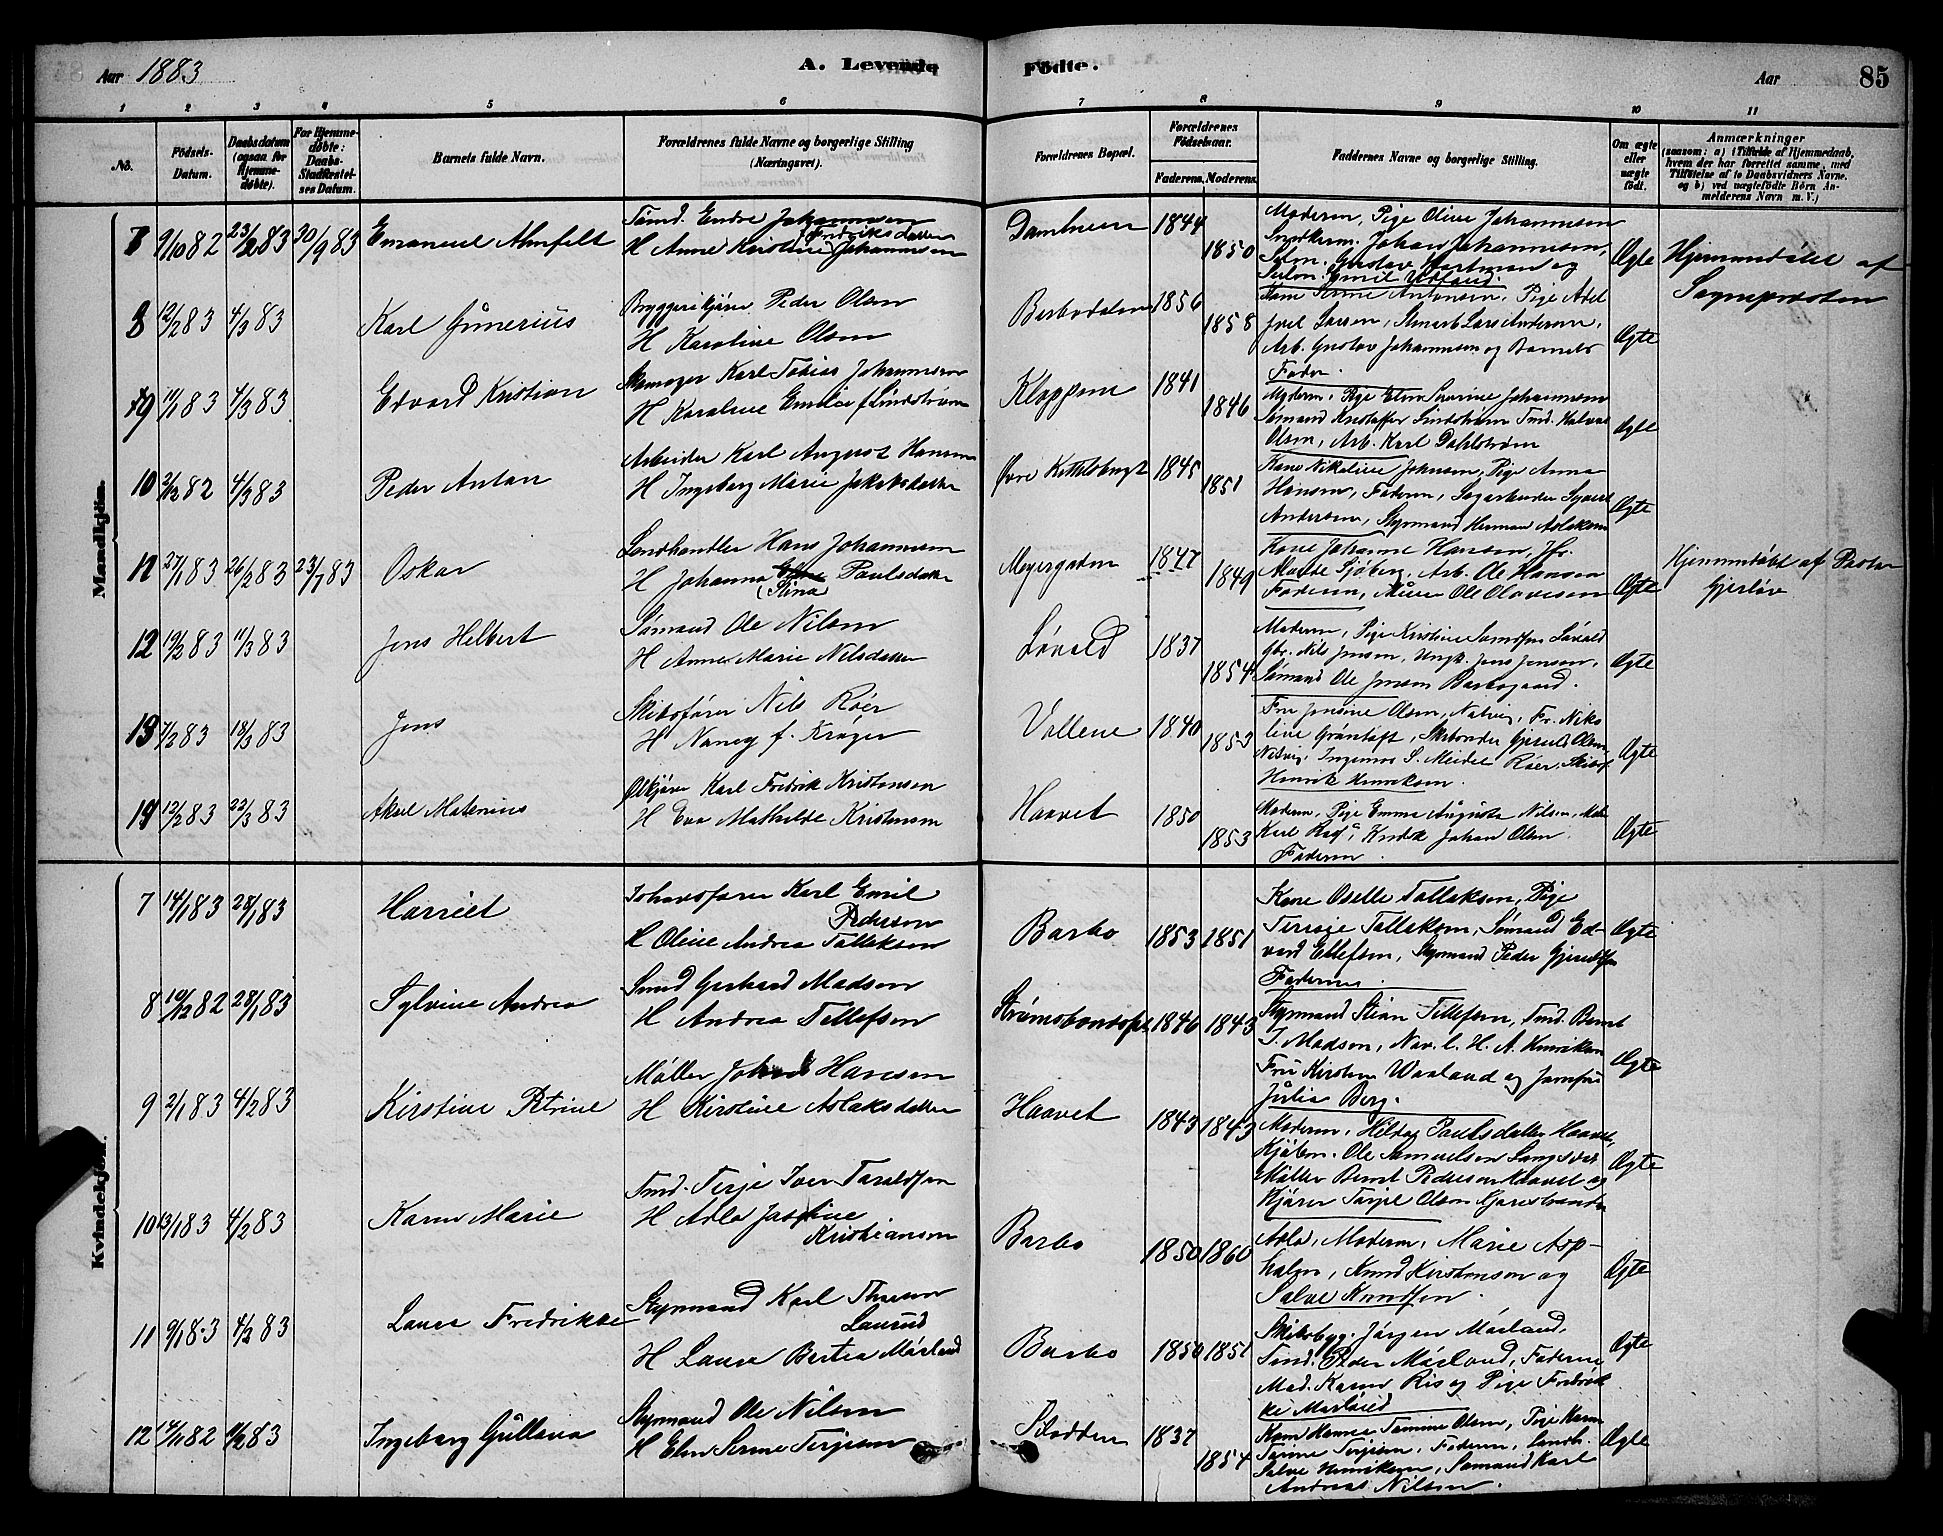 Aar 1883
A. Levende
Födte.
Aar
85
1 2 3 4 5 6 7 8 9 10 11
No.
Födsels-Datum.
Daabsdatum (ogsaa for Hjemmedöbte).
For Hjemmedöbte: Daabs-Stadfæstelses Datum.
Barnets fulde Navn.
Forældrenes fulde Navne og borgerlige Stilling (Næringsvei).
Forældrenes Bopæl.
Forældrenes Födselsaar.
Faderens. Moderens.
Faddernes Navne og borgerlige Stilling.
Om ægte eller uægte födt.
Anmærkninger
(saasom: a) i Tilfælde af Hjemmedaab, hvem der har forrettet samme, med Tilföielse af to Daabsvidners Navne. og b) ved uægtefödte Börn Anmelderens Navn m. V.)
Mandkjön.
7 9/10 82 23/2 83 30/9 83 Emanuel Ahnfelt
Tømd. Endre Johannesen
H Anne Kirstine Fredriksdatter Johannesen
1844 1850
Moderen, Pige Oline Johannesen
Johan Johannesen,
Gustav Hartman og
Ægte
Hjemmedøbt af
Sognepresten
8 12/2 83 4/3 83 Karl Gunerius
Bryggerikjører Peder Olsen
H Karoline Olsen
Barbodalen 1856 1858
Antonsen, Pige Adel
Larsen, Lars Andersen,
Arb. Gustav Johannesen og Barnets
Fader.
Ægte
9 11/1 83 4/3 83 Edvard Kristian
Skomager Karl Tobias Johannesen
H Karoline Emilie f Lindstrøm
Kloppene 1841 1846
Moderen, Pige Elen Severine Johannesen
Sømand Kristoffer Lindstrøm Tmd. Halvor
Olsen, Arb. Karl Dahlstrøm
Ægte
10 2/12 82 4/3 83 Peder Anton
Arbeider Karl August Hansen
H Ingeborg Marie Jakobsdatter
Øvre Kittelsbugt 1845 1851
Kone Nikoline Johnsen, Pige Anna
Hansen, Faderen, Sagarbeider Syvert
Andersen, Styrmand Herman Aslaksen
Ægte
11 27/1 83 26/2 83 23/7 83 Oskar
Landhandler Hans Johannesen
H Johanna Stina Paulsdatter
Meyergaden 1847 1849
Kone Johanne Hansen, Jfr.
Maude Sjøberg, Arb. Ole Hansen
Faderen, Murer Ole Olavesen
Ægte
Hjemmedøbt af Pastor
Gjerløv
12 19/2 83 11/3 83 Jens Helbert
Sømand Ole Nilsen
H Anne Marie Nilsdatter
Løvold 1837 1854
Moderen, Pige Kirstine Løvold
Gbr. Nils Jensen, Ungk. Jens Jensen,
Sømand Ole Jensen Barbogaard.
Ægte
13 7/2 83 18/3 83 Jens
Skibsfører Nils Röer
H Nancy f. Krøger
Vollene 1840 1853
Fru Jensine Olsen, Natvig, Fr. Niko
line Grøntoft, Skibsreder Gjeruld Olsen
Natvig, Ingeniør S. Meidel Röer, Skibsf
Henrik Henriksen.
Ægte
14 12/2 83 22/3 83 Aksel Materius
Ølkjører Karl Fredrik Kristensen
H Eva Mathilde Kristensen
Haavet 1850 1853
Moderen, Pige Emma Augusta Nilsen,
Karl Johan Olsen.
Faderen.
Ægte
Kvindekjön.
7 14/1 83 28/1 83 Harriet
Karl Emil
Pedersen
H Oline Andrea Tallaksen
Barbo 1853 1851
Kone Oselle Tallaksen, Pige
Terese Tallaksen, Sømand Ed-
vard Ellefsen, Styrmand Peder Gjeruldsen
Faderen.
Ægte
8 10/12 82 28/1 83 Sylvine Andrea
Smed Gerhard Madsen
H Andrea Tellefsen
1846 1843
Styrmand Stian Tellefsen, Tmd. Bernt
T. Madsen, Nav. l. H. A. Henriksen
Fru Kirsten Waaland og Jomfru
Julia Berg.
Ægte
9 2/1 83 4/2 83 Kirstine Petrine
Møller Hansen
H Kirstine Aslaksdatter
Haavet 1843 1843
Moderen, Hilda Paulsdatter Haavet,
Kjøbm. Ole Samuelsen
Møller Bernt Pedersen Haavet og
Kjører Terje Olsen
Ægte
10 13/1 83 4/2 83 Karen Marie
Tmd. Terje Iver Taraldsen
H Adla Josefine
Kristiansen
Barbo 1850 1860
Adla, Moderen, Marie Asp-
halen, Knud Kirstensen og
Salve Knudsen.
Ægte
11 9/1 83 4/2 83 Laura Fredrikke
Styrmand Karl
Laurud
H Laura Bertea Mörland
Barbo 1850 1851
Skibsbyg. Jörgen Mörland,
Tmd. Peder Mörland, Faderen
Mad. Karen Ris og Pige Fredrik
ke Mörland
Ægte
12 14/11 82 11/2 83 Ingeborg Gullava
Styrmand Ole Nilsen
H Elen Serine Terjesen
Lodden 1837 1854
Kone Hanne Tomine Olsen, Pige Karen
Terjesen, Faderen, Landh.
Salve Henriksen, Sømand Karl
Andreas Nilsen.
Ægte